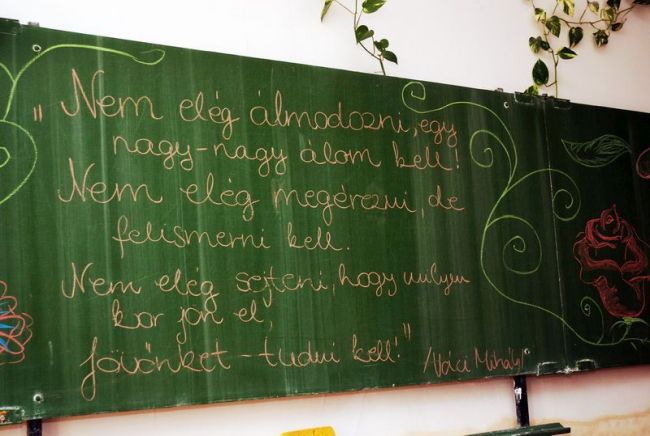 "Nem elég álmodozni, egy
nagy-nagy álom kell!
Nem elég megérezni, de
felismerni kell.
Nem elég sejteni, hogy milyen
kor jön el,
jövőnket - tudni kell!" /Váci Mihály/